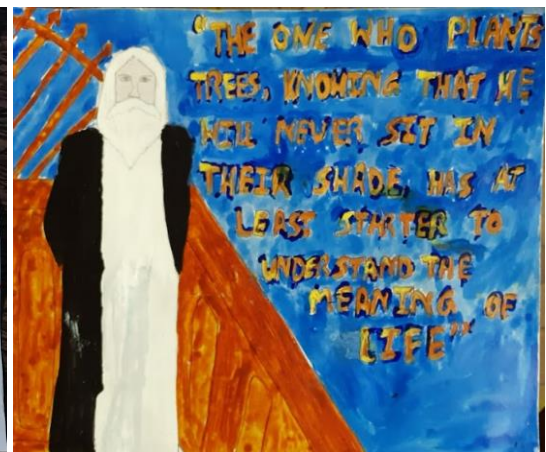 "THE ONE WHO PLANTS
TREES, KNOWING THAT HE
WILL NEVER SIT IN
THEIR SHADE, HAS AT
LEAST STARTER TO
UNDERSTAND THE
MEANING OF
LIFE"